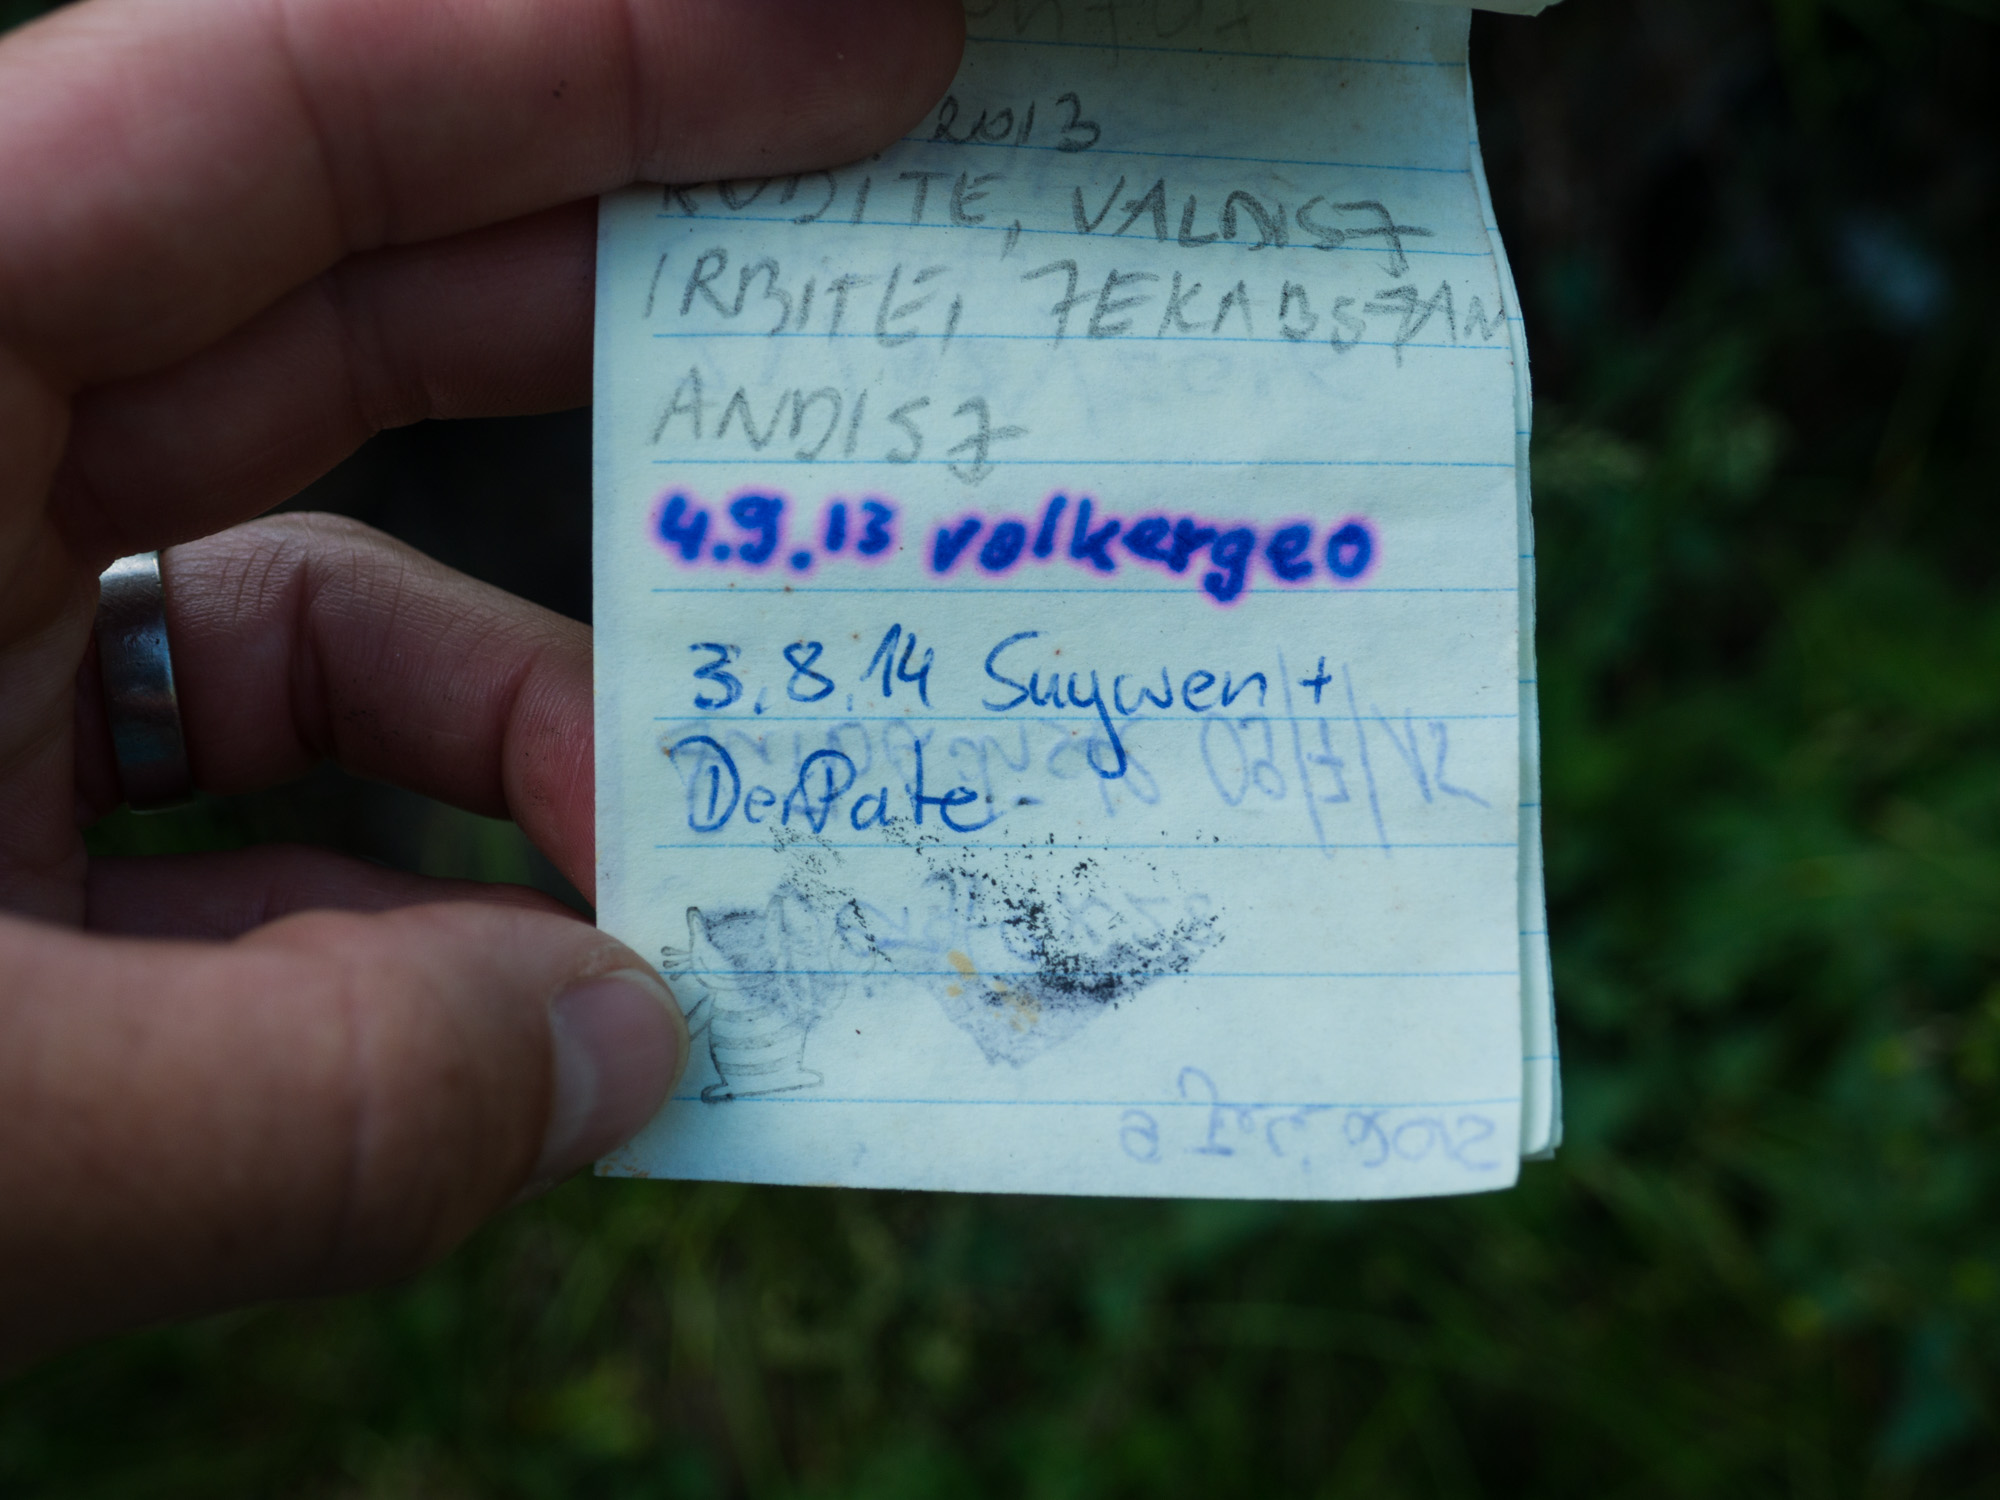 2013
RUDITE, VALDISZ
IRBITE, ZEKABSZAN
ANDISZ
4.9.13 volkergeo
3.8.14 Suywen +
DerPate